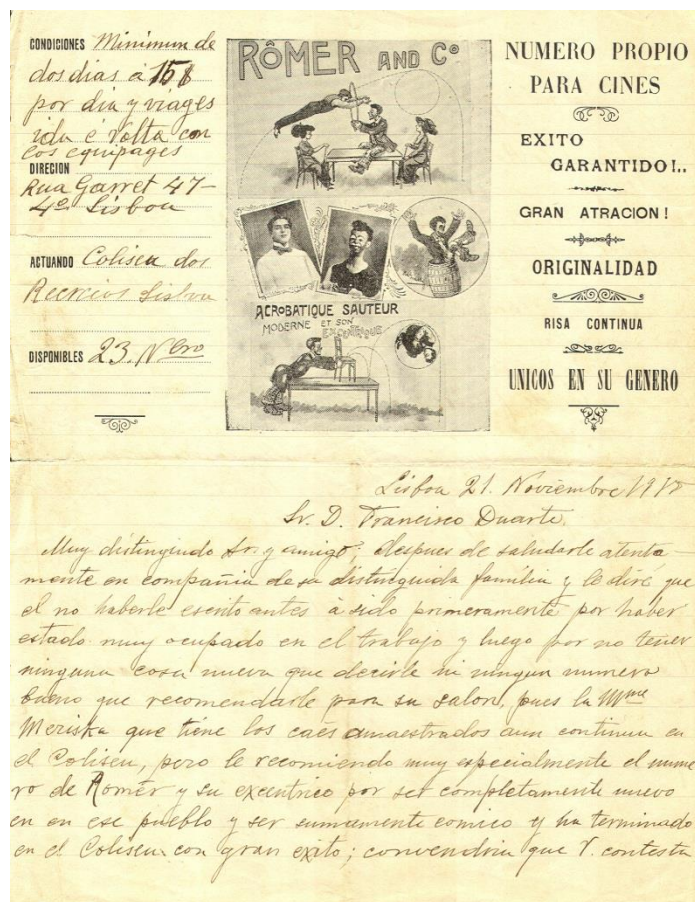 CONDICIONES Minimun de
dos dias á 15$
por dia y viages
ida é volta con
los equipages
DIRECION
Rua Garret 47-
4º Lisboa
ACTUANDO Coliseu dos
Recreios Lisboa
DISPONIBLES 23. Nbro
RÔMER AND Cº
ACROBATIQUE SAUTEUR
MODERNE ET SON
EXCENTRIQUE
NUMERO PROPIO
PARA CINES
EXITO
GARANTIDO!..
GRAN ATRACION!
ORIGINALIDAD
RISA CONTINUA
UNICOS EN SU GENERO
Lisboa 21. Noviembre
Sr. D. Francisco Duarte
Muy distinguido Sr. y amigo, despues de saludarle atenta-
mente en compañia de su distinguida família y le diré que
el no haberle escrito antes á sido primeramente por haber
estado muy ocupado en el trabajo y luego por no tener
ninguna cosa nueva que decirle ni ningun numero
bueno que recomendarle para su salon, pues la Mme
Meriska que tiene los caẽs amaestrados aun continua en
el Coliseu, pero le recomiendo muy especialmente el nume
ro de Romër y su excentrico por ser completamente nuevo
en en ese pueblo y ser sumamente comico y ha terminado
en el Coliseu con gran exito; convendria que V. contesta